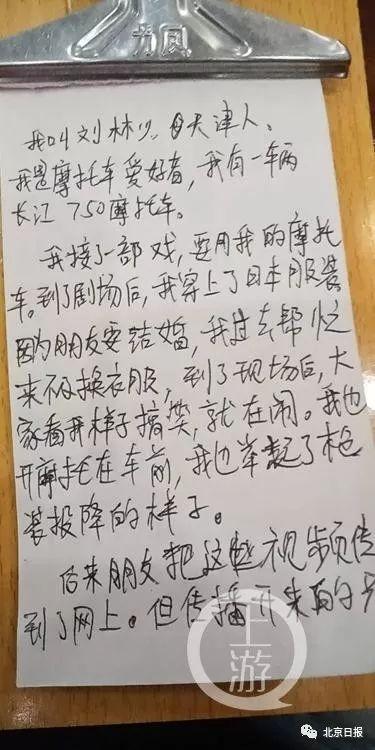 力风
我叫刘林 天津人。
我是摩托车爱好者,我有一辆
长江750摩托车。
我接了一部戏,要用我的摩托
车。到了剧场后,我穿上了日本服装
因为朋友要结婚,我过去帮忙
来不及换衣服,到了现场后,大
家看我样子搞笑,就在闹。我也
开摩托在车前,我也举起了枪
装投降的样子。
后来朋友把这些视频传
到了网上。但传播开来的
上游
北京日报